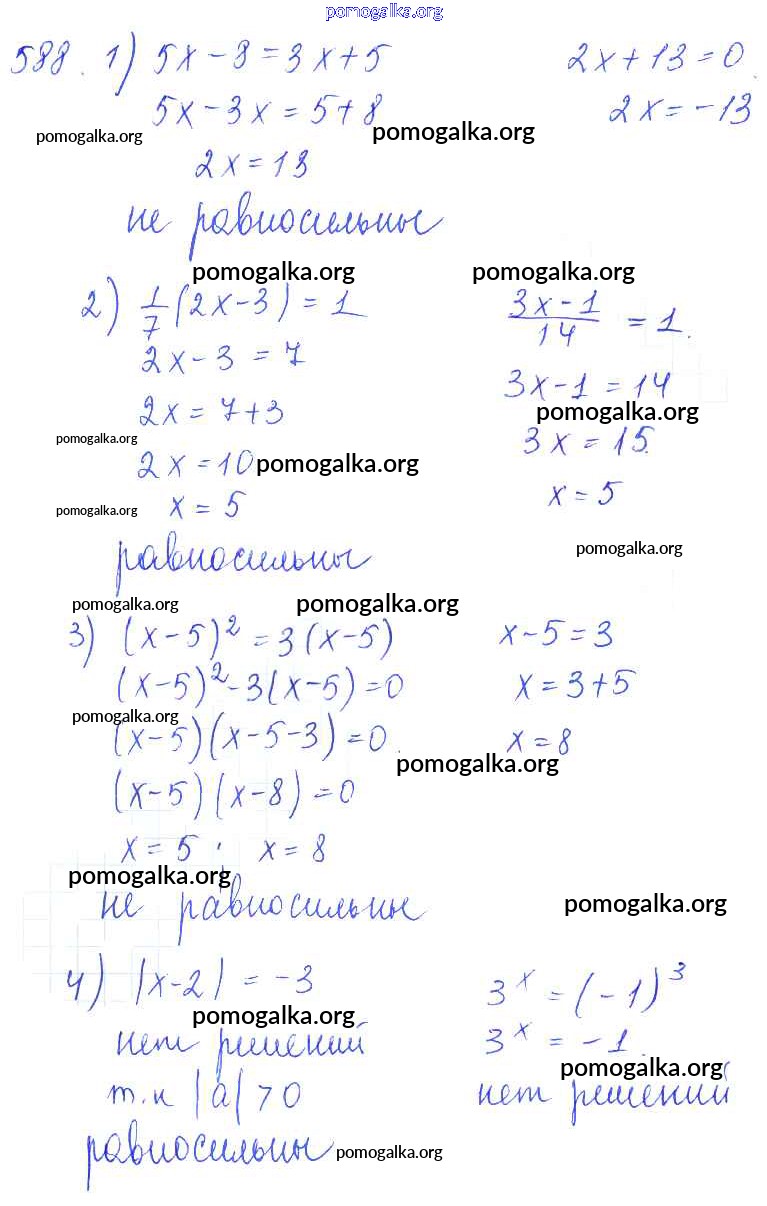 pomogalka.org
588. 1) 5x-8=3x+5 2x+13=0
5x-3x=5+8 2x=-13
pomogalka.org pomogalka.org
2x=13
не равносильны
pomogalka.org pomogalka.org
2) 1/7(2x-3)=1 (3x-1)/14=1.
2x-3=7 3x-1=14
2x=7+3 pomogalka.org
pomogalka.org 3x=15.
2x=10 pomogalka.org
pomogalka.org x=5 x=5
равносильны pomogalka.org
pomogalka.org pomogalka.org
3) (x-5)²=3(x-5) x-5=3
(x-5)²-3(x-5)=0 x=3+5
pomogalka.org
(x-5)(x-5-3)=0. x=8
pomogalka.org
(x-5)(x-8)=0
x=5, x=8
pomogalka.org pomogalka.org
не равносильны
4) |x-2|=-3 3ˣ=(-1)³
pomogalka.org
нет решений 3ˣ=-1.
pomogalka.org
т.к |a|>0 нет решений
равносильны pomogalka.org